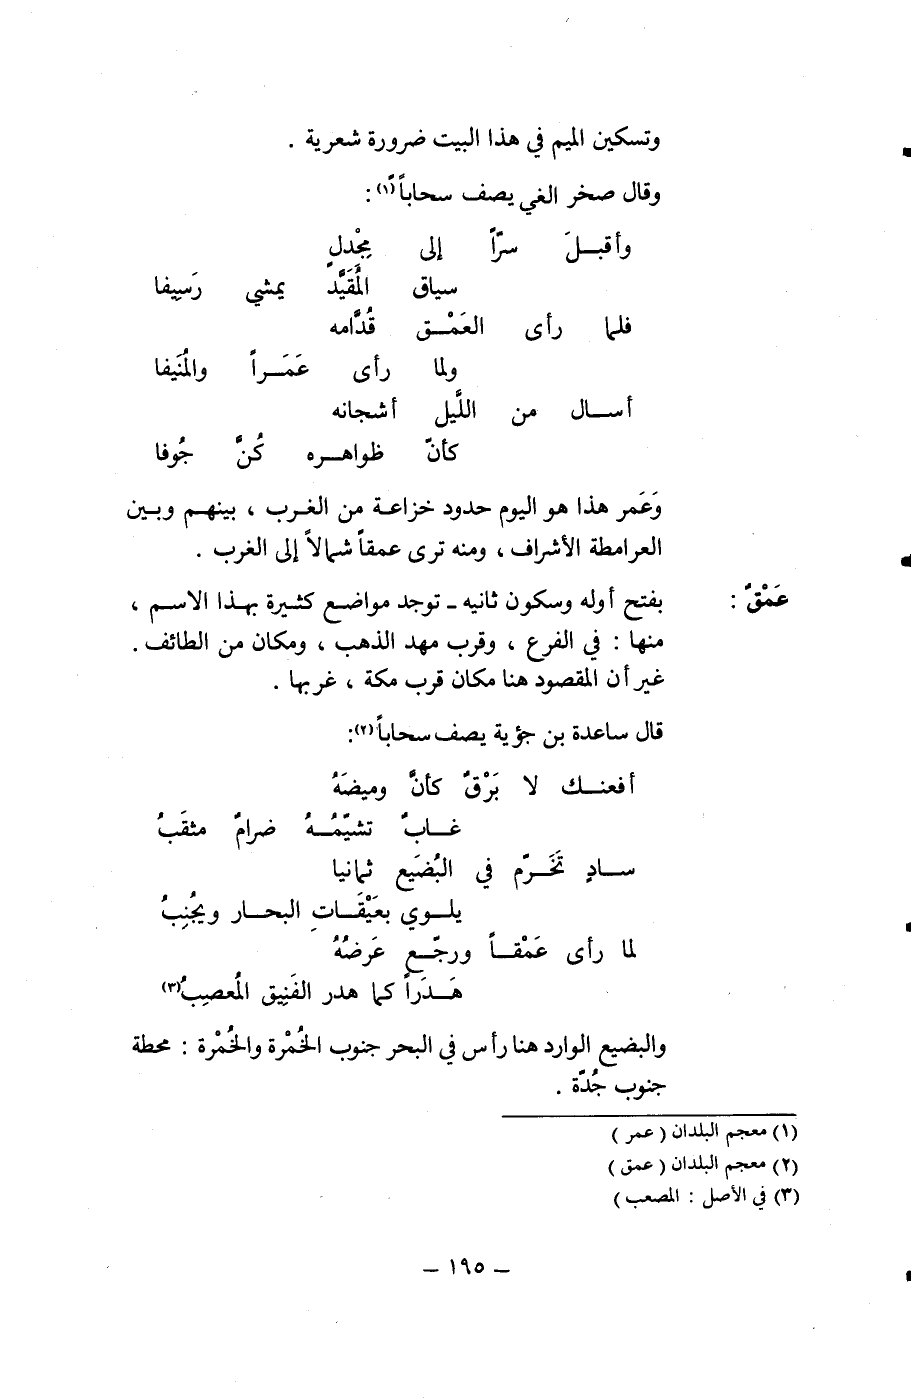 وتسكين الميم في هذا البيت ضرورة شعرية .
وقال صخر الغي يصف سحاباً(١):
وأقبـلَ سرّاً إلى مِجْدلٍ
سياق المُقَيَّد يمشي رَسِيفا
فلما رأى العَمْـق قُدَّامه
ولما رأى عَمَـراً والمُنَيفا
أسـال من اللَّيل أشجانه
كأنّ ظواهـره كُنَّ جُوفا
وَعَمر هذا هو اليوم حدود خزاعـة من الغـرب ، بينهـم وبـين
العرامطة الأشراف ، ومنه ترى عمقاً شمالاً إلى الغرب .
عَمْقٌ : بفتح أوله وسكون ثانيه ـ توجد مواضع كثيرة بهـذا الاسـم ،
منها : في الفرع ، وقرب مهد الذهب ، ومكان من الطائف .
غير أن المقصود هنا مكان قرب مكة ، غربها .
قال ساعدة بن جؤية يصف سحاباً(٢):
أفعنـك لا بَرْقٌ كأنَّ وميضَهُ
غـابٌ تشيّمُـهُ ضرامٌ مثقَبُ
سـادٍ تَخَـرّم في البُضَيع ثمانيا
يلـوي بعَيْقَـاتِ البحـار ويجُنِبُ
لما رأى عَمْقـاً ورجّـع عَرضُهُ
هَـدَراً كما هدر الفَنِيق المُعصِبُ(٣)
والبضيع الوارد هنا رأس في البحر جنوب الخُمْرة والخُمْرة : محطة
جنوب جُدّة .
(١) معجم البلدان ( عمر )
(٢) معجم البلدان ( عمق )
(٣) في الأصل : المصعب )
– ١٩٥ –